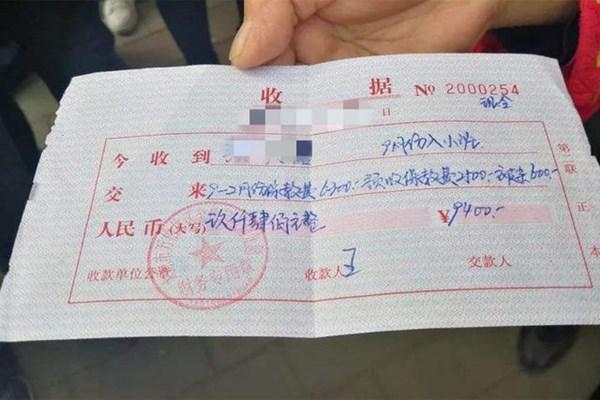 收 据 № 2000254
日 现金
今收到 9月份入小班
交来 9-2月份保教费6300.- 预收保教费2500.- 600.-
人民币(大写) 玖仟肆佰元整 ¥9400.-
收款单位公章 收款人 王 交款人
财务专用章
第二联 正本